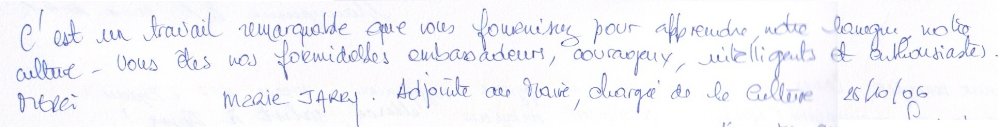 C'est un travail remarquable que vous fournissez pour apprendre, notre langue, notre
culture - Vous êtes nos formidables ambassadeurs, courageux, intelligents et enthousiastes.
Merci Marie JARRY. Adjointe au Maire, chargée de la Culture 25/10/06